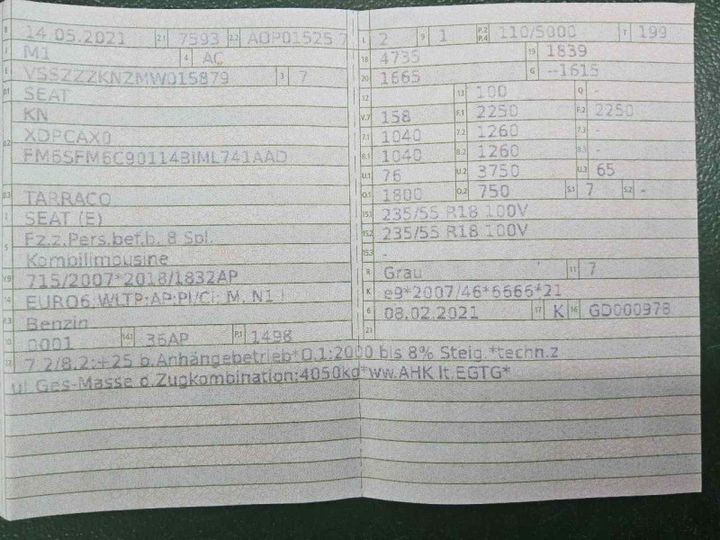 B 14.05.2021 2.1 7593 2.2 AOP01525 7
J M1 4 AC
E VSSZZZKNZMW015879 3 7
D.1 SEAT
KN
D.2 XDPCAX0
FM6SFM6C90114BIML741AAD
D.3 TARRACO
2 SEAT (E)
5 Fz.z.Pers.bef.b. 8 Spl.
Kombilimousine
V.9 715/2007*2018/1832AP
14 EURO6;WLTP;AP;PI/CI; M, N1 I
P.3 Benzin
10 0001 14.1 36AP P.1 1498
22 7.2/8.2:+25 b.Anhängebetrieb*O.1:2000 bis 8% Steig.*techn.z
ul Ges-Masse d.Zugkombination:4050kg*ww.AHK lt.EGTG*
L 2 9 1 P.2 P.4 110/5000 T 199
18 4735 19 1839
20 1665 G --1615
12 13 100 Q -
V.7 158 F.1 2250 F.2 2250
7.1 1040 7.2 1260 7.3 -
8.1 1040 8.2 1260 8.3 -
U.1 76 U.2 3750 U.3 65
O.1 1800 O.2 750 S.1 7 S.2 -
15.1 235/55 R18 100V
15.2 235/55 R18 100V
15.3 -
R Grau 11 7
K e9*2007/46*6666*21
6 08.02.2021 17 K 16 GD000978
21